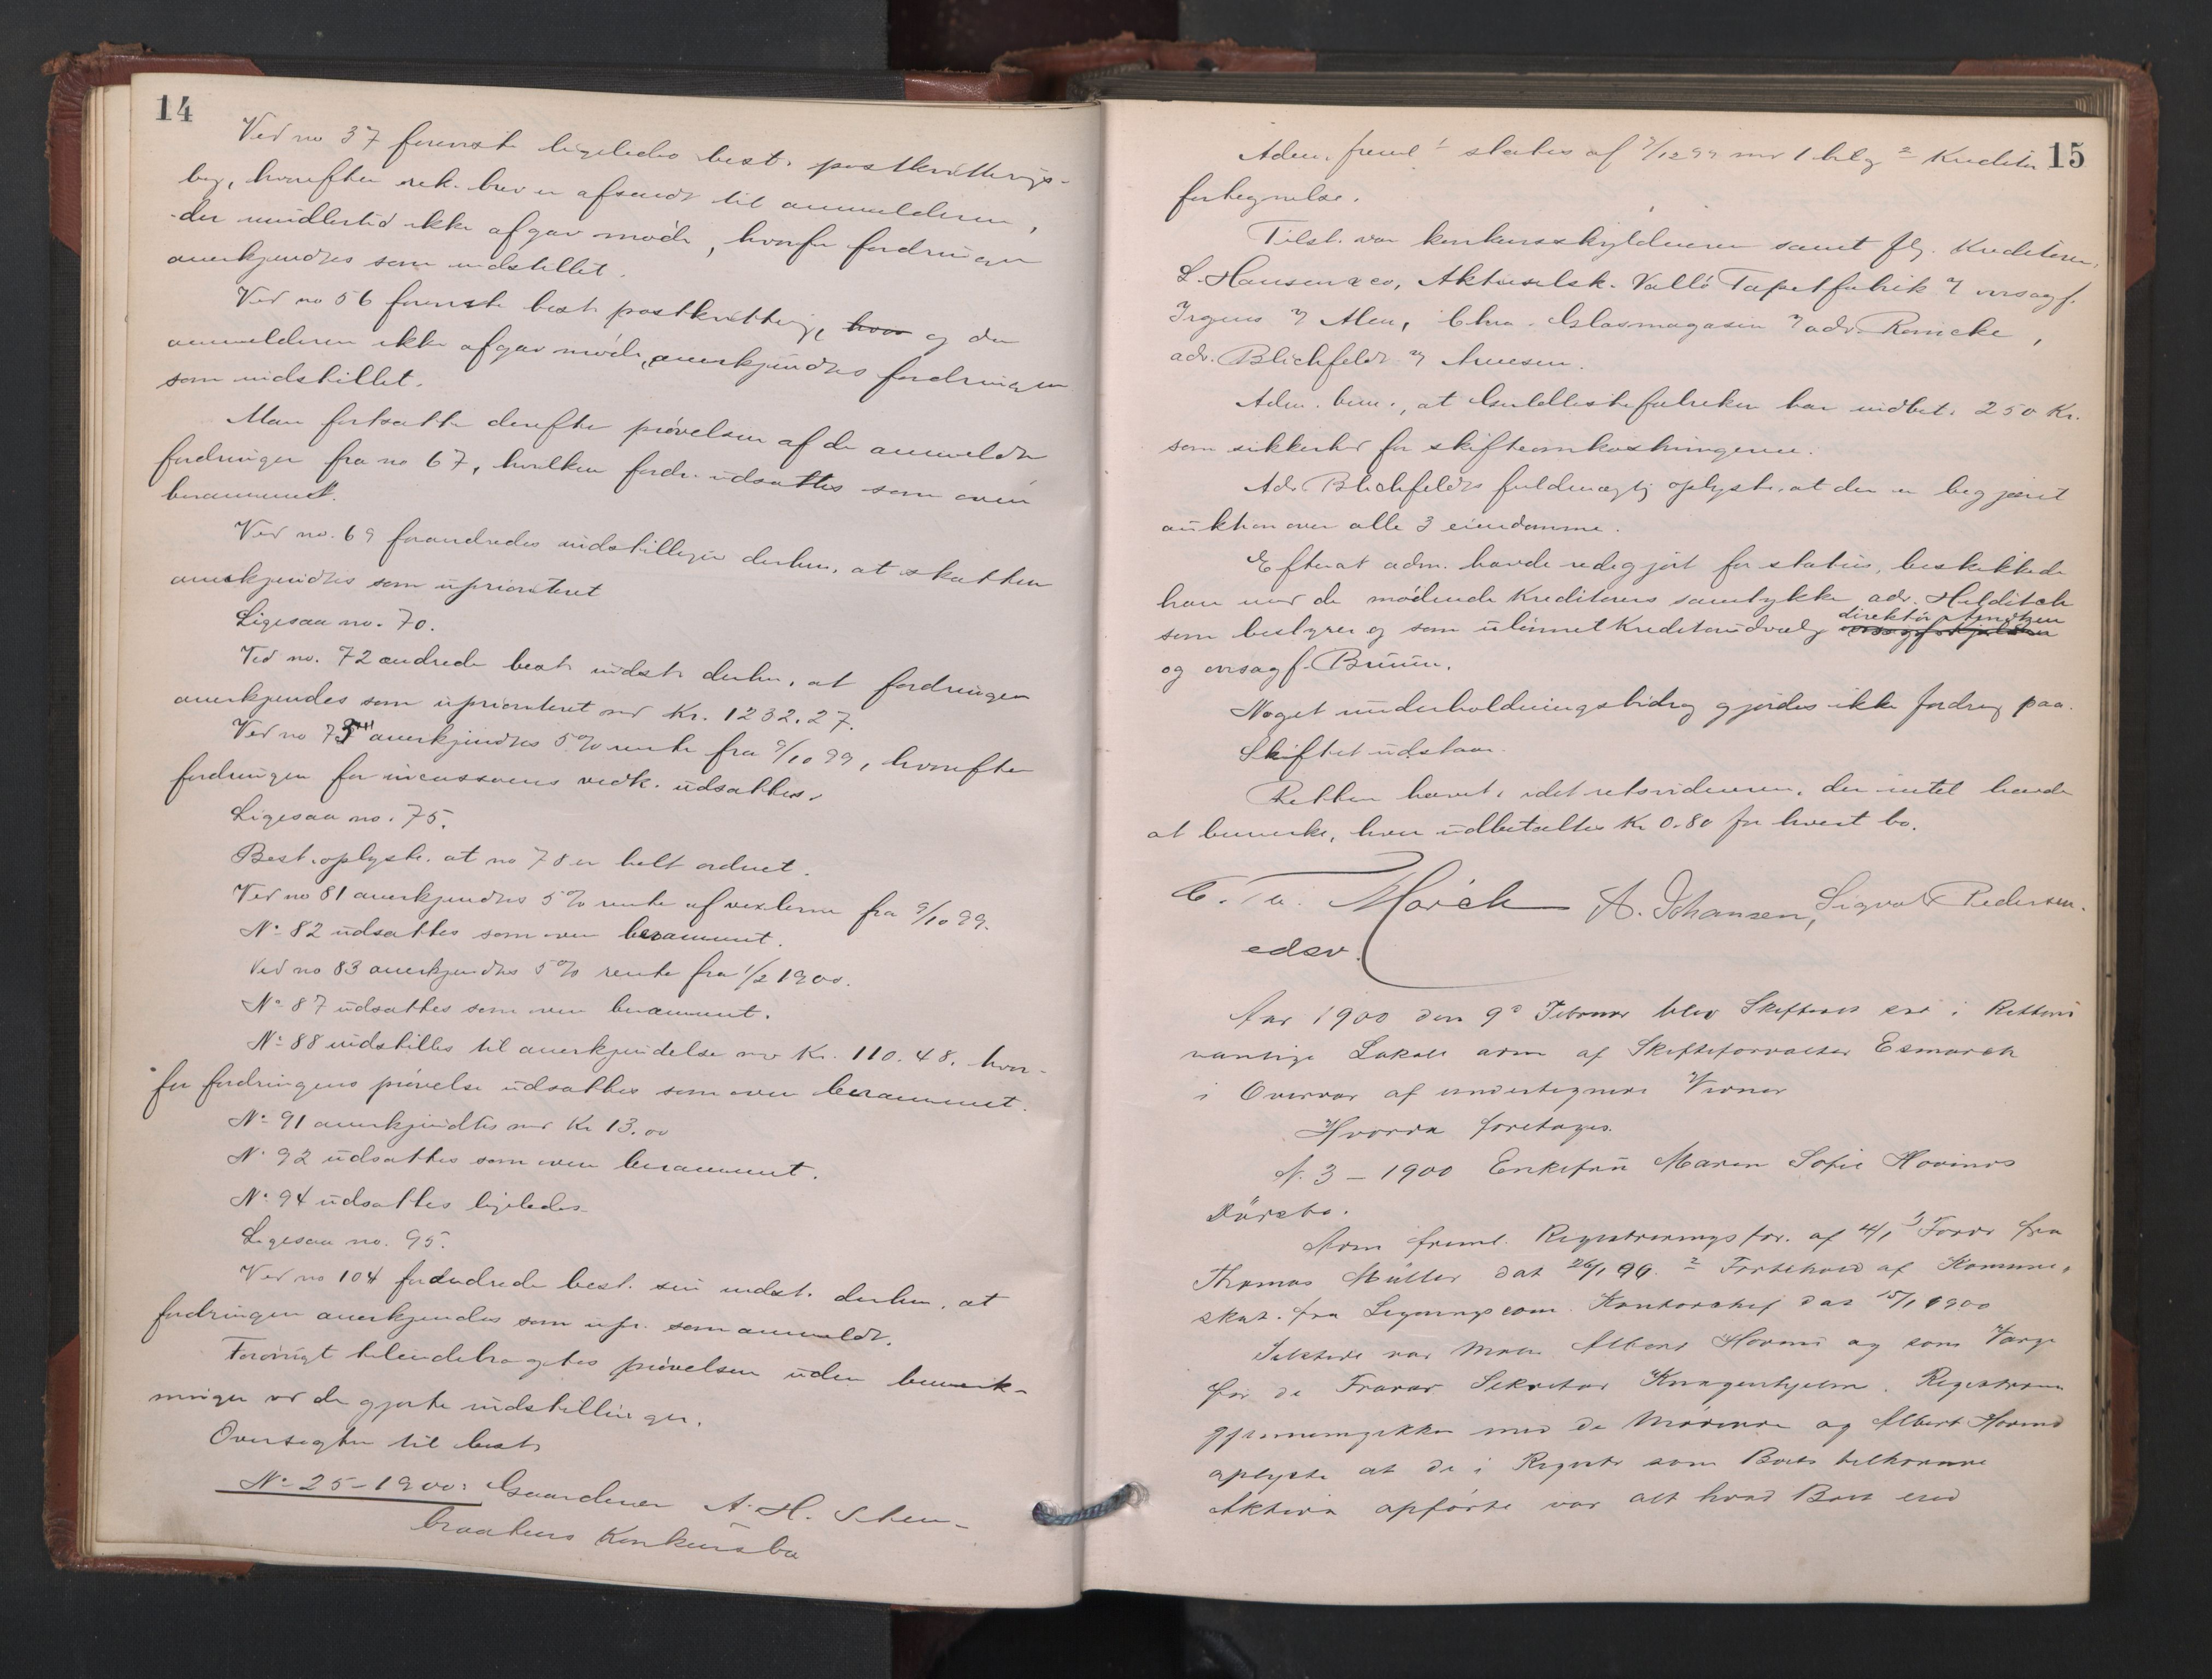 14
Ved no 37 foreviste ligeledes best. postkvitterings-
bog, hvorefter rek. brev er afsendt til anmelderen,
der imidlertid ikke afgav møde, hvorfor fordringen
anerkjendtes som indstillet.
Ved no 56 foreviste best. postkvittering, hvor og da
anmelderen ikke afgav møde, anerkjendtes fordringen
som indstillet.
Man fortsatte derefter prövelsen af de anmeldte
fordringer fra no 67, hvilken fordr. udsattes som oven
berammet.
Ved no. 69 forandredes indstillingen derhen, at skatten
anerkjendtes som uprioriteret
Ligesaa no. 70.
Ved no. 72 ændrede best. indst. derhen, at fordringen
anerkjendes som uprioriteret med Kr. 1232.27.
Ved no 73 anerkjendtes 5% rente fra 9/10 99, hvorefter
fordringen for incassoens vedk. udsattes.
Ligesaa no. 75.
Best. oplyste, at no 78 er helt ordnet.
Ved no 81 anerkjendtes 5% rente af vexlerne fra 9/10 99.
No 82 udsattes som oven berammet.
Ved no 83 anerkjendtes 5% rente fra 1/2 1900.
No 87 udsattes som oven berammet.
No 88 indstilles til anerkjendelse med Kr. 110.48, hvor-
for fordringens prövelse udsattes som oven berammet.
No 91 anerkjendtes med Kr 13.00
No 92 udsattes som oven berammet.
No 94 udsattes ligeledes
Ligesaa no. 95.
Ved no 104 forandrede best. sin indst. derhen, at
fordringen anerkjendes som upr. som anmeldt.
Forövrigt tilendebragtes prövelsen uden bemærk-
ninger ved de gjorte indstillinger.
Oversigten til best.
No 25-1900: Gaardeier A. H. Sten-
braatens Konkursbo
15
Adm. freml. 1 status af 7/12 99 med 1 bilag 2 Kreditor
fortegnelse.
Tilst. var konkursskyldneren samt flg. Kreditorer:
L. Hansen & co, Aktieselsk. Vallö Tapetfabrik v/ ovrsagf.
Irgens v/ Alen, Chra. Glasmagasin v/ adv. Reincke,
adv. Blichfeldt v/ Arnesen.
Adm. bem., at Guldlistefabriken har indbet. 250 Kr.
som sikkerhed for skifteomkostningerne.
Adv. Blichfeldts fuldmægtig oplyste, at der er begjæret
auktion over alle 3 eiendomme.
Efterat adm. havde redegjort for status, beskikkede
han med de mödende Kreditorers samtykke adv. Holditch
som bestyrer og som ulönnet Kreditorudvalg direktör
og ovrsagf. Bruun.
Noget underholdningsbidrag gjordes ikke fordring paa.
Skiftet udstaar.
Retten hævet, idet retsvidnerne, der intet havde
at bemærke, hver udbetaltes Kr 0.80 for hvert bo.
C. Th. Mörch A. Johansen, Sigvat Pedersen.
edsv.
Aar 1900 den 9de Februar blev Skifteret sat i Rettens
vanlige Lokale adm af Skifteforvalter Esmarch
i Overvær af undertegnede Vidner
Hvorda foretages.
N. 3 – 1900 Enkefru Maren Sofie Hovinds
Dödsbo.
Adm freml. Registreringsfor. af 4/1 1) Fordr fra
Thomas Müller dat 26/1 99. 2 Forbehold af Kommune-
skat. fra Ligningscom. Kontorchef dat 15/1 1900
Tilstede var Albert Hovind og som Værge
for de Fravær Sekretær Knagenhjelm. Registreren
gjennemgikkes med de Mødende og Albert Hovind
oplyste at de i Registr som Boets tilhørende
Aktiva opførte var alt hvad Boet eied